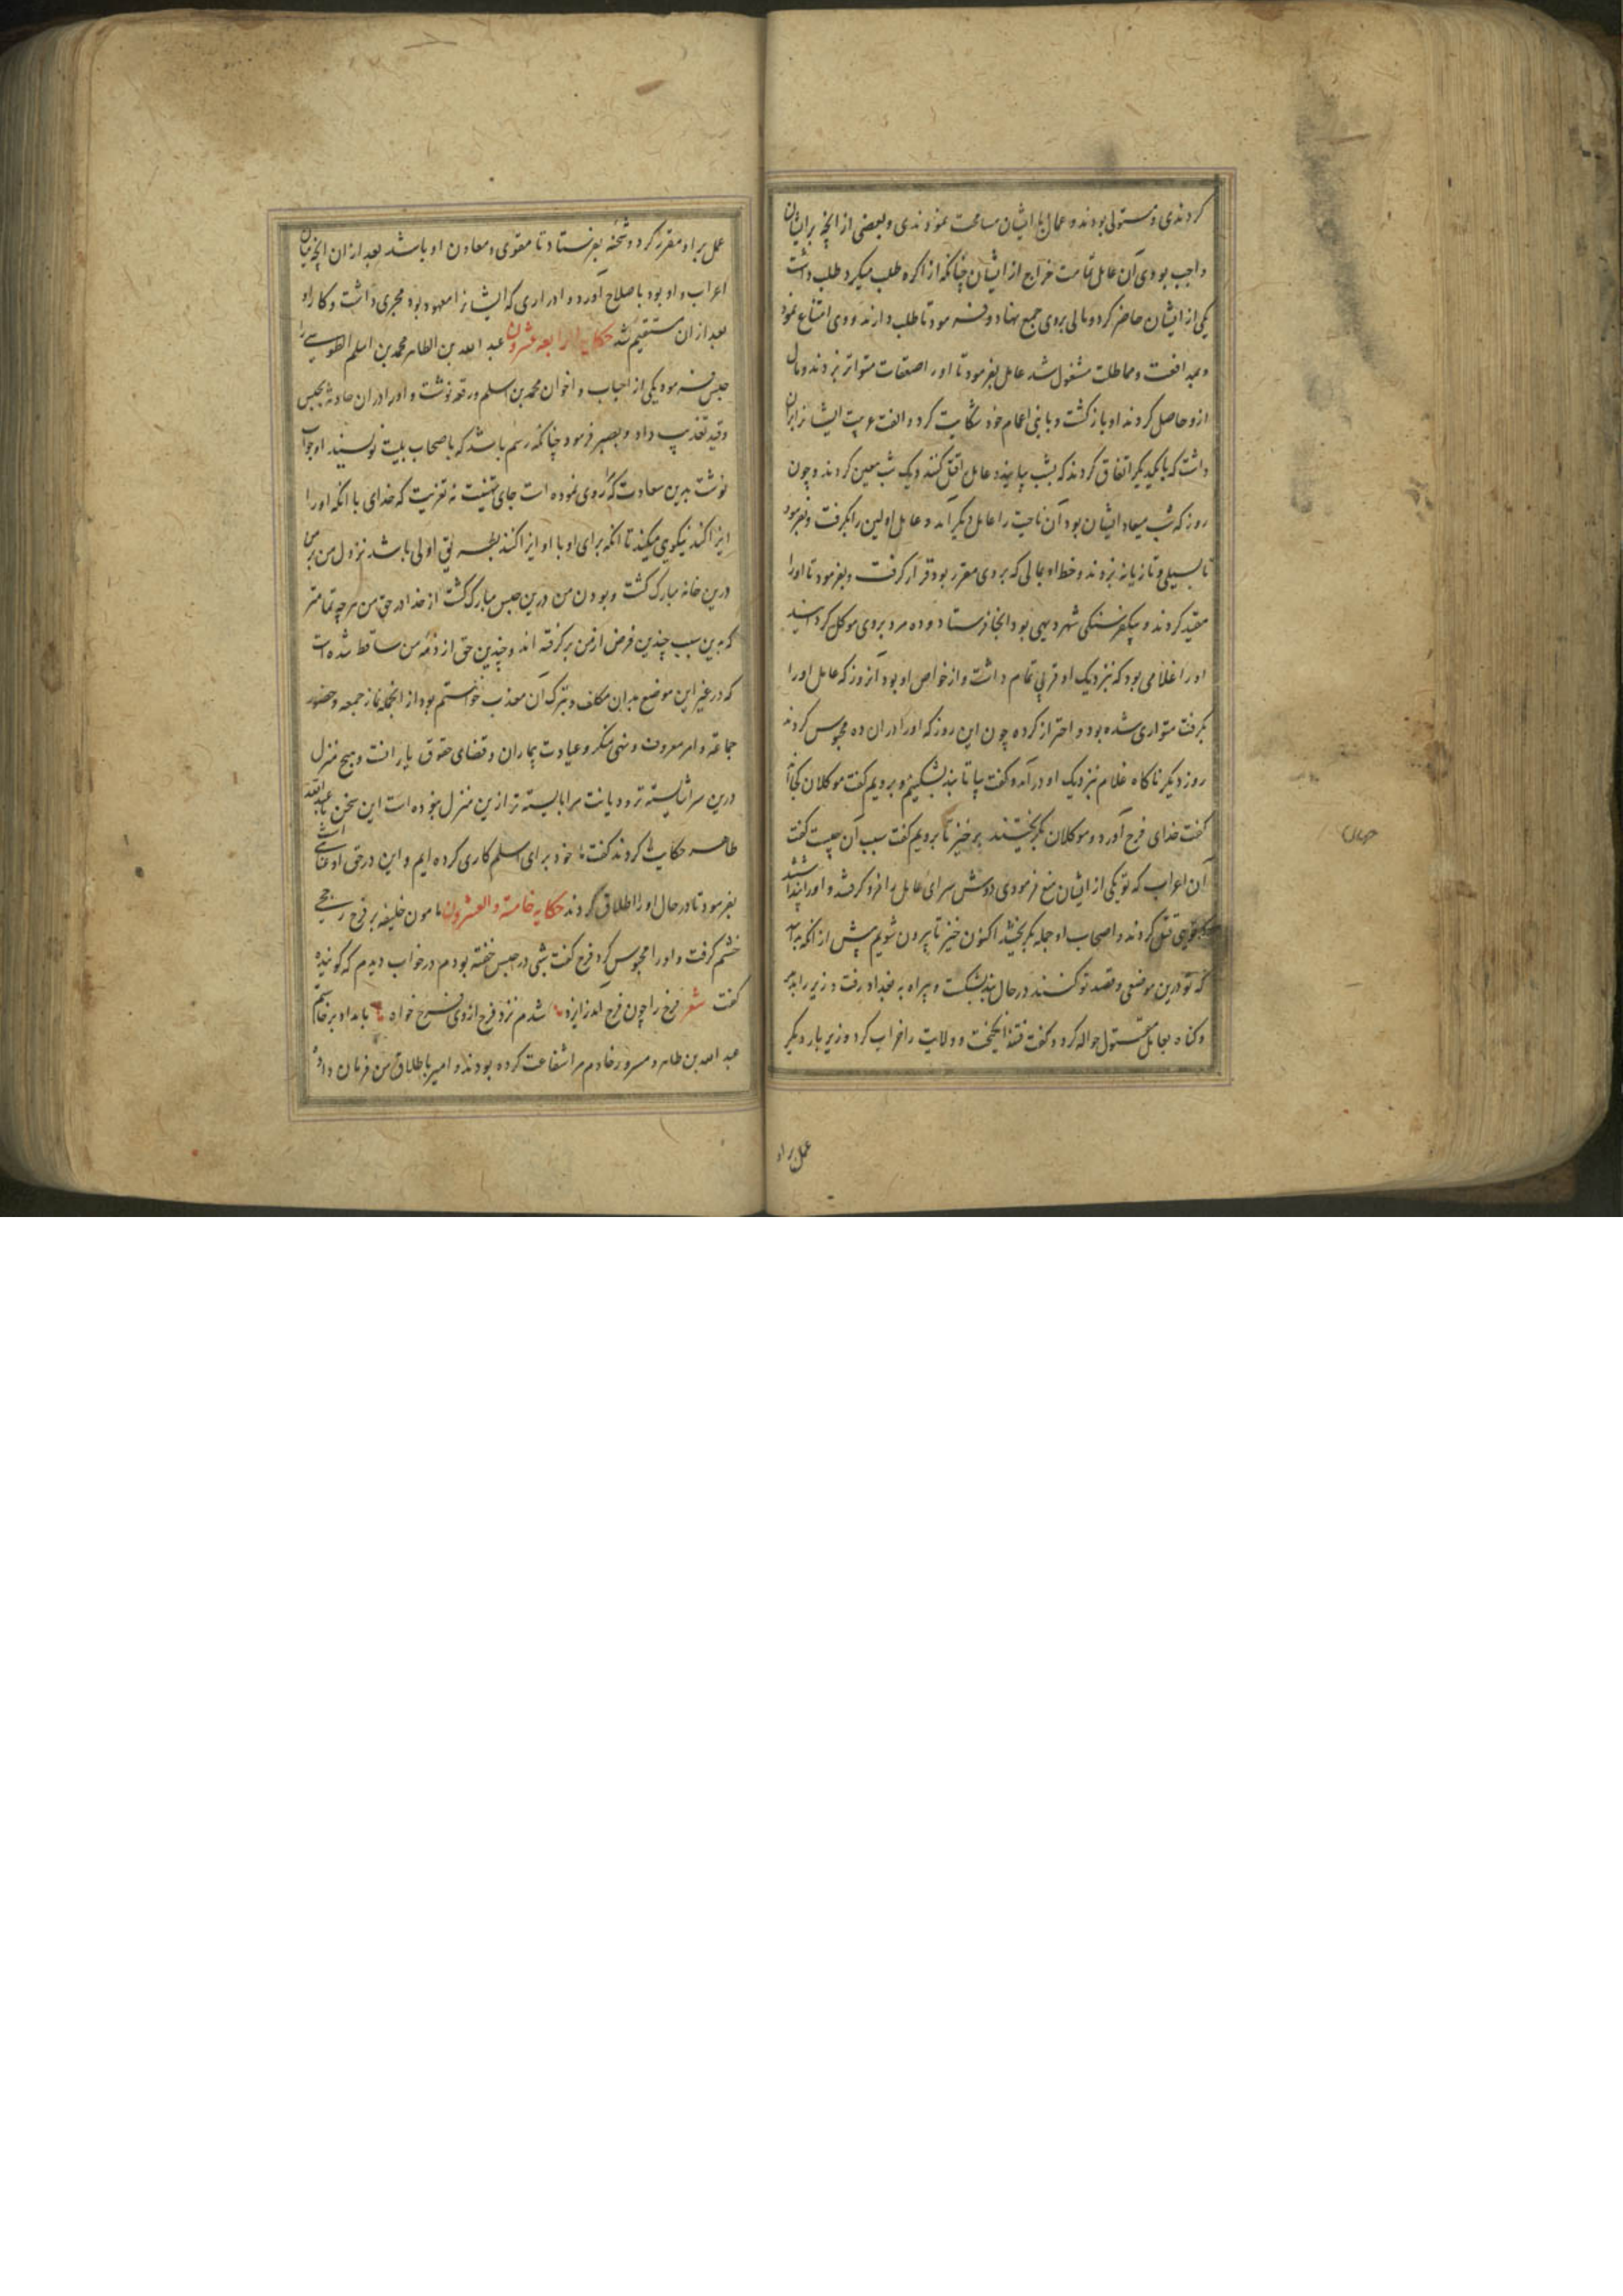 کردندی و مستولی بودند و عمال با ایشان مسامحت نمودندی و بعضی از آنچه بر ایشان
واجب بودی آن عامل تمامت خراج از ایشان چنانکه از اکره طلب میکرد طلب داشت
یکی از ایشان حاضر کرد و مالی بروی جمع نهاد و فرمود تا طلب دارند و وی امتناع نمود
و بمدافعت و مماطلت مشغول شد عامل بفرمود تا او را صفعات متواتر بزدند و مال
ازو حاصل کردند او بازگشت و با بنی اعمام خود شکایت کرد و الفت عربیت ایشانرا بران
داشت که با یکدیگر اتفاق کردند که بشب بیایند و عامل را قتل کنند و یک شب معین کردند و چون
روز که شب میعاد ایشان بود آن ناحیت را عامل دیگر آمد و عامل اولین را بگرفت و بفرمود
تا بسیلی و تازیانه بزدند و خط او بمالی که بروی مقرر بود قرار گرفت و بفرمود تا اورا
مقید کردند و بیکفرسنگی شهر دیهی بود آنجا فرستاد و ده مرد بروی موکل گردانید
اورا غلامی بود که بنزدیک او قربی تمام داشت و از خواص او بود آنروز که عامل اورا
بگرفت متواری شده بود و احتراز کرده چون این روز که اورا دران ده محبوس کردند
روز دیگر ناگاه غلام بنزدیک او درآمد و گفت بیا تا بند بشکنیم و برویم گفت موکلان کجااند
گفت خدای فرج آورد و موکلان بگریختند برخیز تا برویم گفت سبب آن چیست گفت
آن اعراب که تو یکی از ایشان صفع فرمودی دوش سرای عامل را فرو گرفتند و اورا
قتل کردند و اصحاب او جمله بگریختند اکنون خیز تا بیرون شویم پیش از آنکه بدانند
که تو درین موضعی و قصد تو کنند در حال بند بشکست و بیراه به بغداد رفت و زیر را بدید
و گناه بعامل مقتول حواله کرد و گفت فتنه انگیخت و ولایت را خراب کرد وزیر بار دیگر
عمل بر او
عمل بر او مقرر کرد و شحنه بفرستاد تا مقوی و معاون او باشد بعد ازان آنچه میان
اعراب و او بود باصلاح آورد و ادراری که ایشانرا معهود بود مجری داشت و کار او
بعد ازان مستقیم شد حکایة الرابعه عشرون عبد الله بن الطاهر محمد بن اسلم الطوسی را
حبس فرمود یکی از احباب و اخوان محمد بن اسلم ورقعه نوشت و اورا دران حادثه بحبس
و قید تعذیب داد و بصبر فرمود چنانکه رسم باشد که باصحاب بلیت نویسند او جواب
نوشت بدین سعادت که روی نموده است جای تهنیت نه تعزیت که خدای با آنکه اورا
ایذا کند نیکوی میکند تا آنکه برای او با او ایذا کنند بطریق اولی باشد نزول من بر من
درین خانه مبارک گشت و بودن من درین حبس مبارک گشت از خدا در حق من هر چه تمامتر
که بدین سبب چندین فرض از من برگرفته اند و چندین حق از ذمه من ساقط شده است
که در غیر این موضع بدان مکلف و بترک آن معذب خواستم بود از آنجمله نماز جمعه و حضور
جماعة و امر معروف و نهی منکر و عیادت بیماران و قضای حقوق یاران است و هیچ منزل
درین سرا شایسته تر و دیانت مرا بایسته تر ازین منزل نبوده است این سخن با عبدالله
طاهر حکایت کردند گفت ما خود برای اسلم کاری کرده ایم و این در حق او عنایتی است
بفرمود تا در حال اورا اطلاق کردند حکایه خامسة و العشرون مامون خلیفه بر فرج رخجی
خشم گرفت و اورا محبوس کرد فرج گفت شبی در حبس خفته بودم در خواب دیدم که گوینده
گفت شعر فرج را چون فرج آمد ز ایزد شدم نزد فرج از وی فرج خواه بامداد برخاستم
عبد الله بن طاهر و مسرور خادم مرا شفاعت کرده بودند و امیر باطلاق من فرمان داد